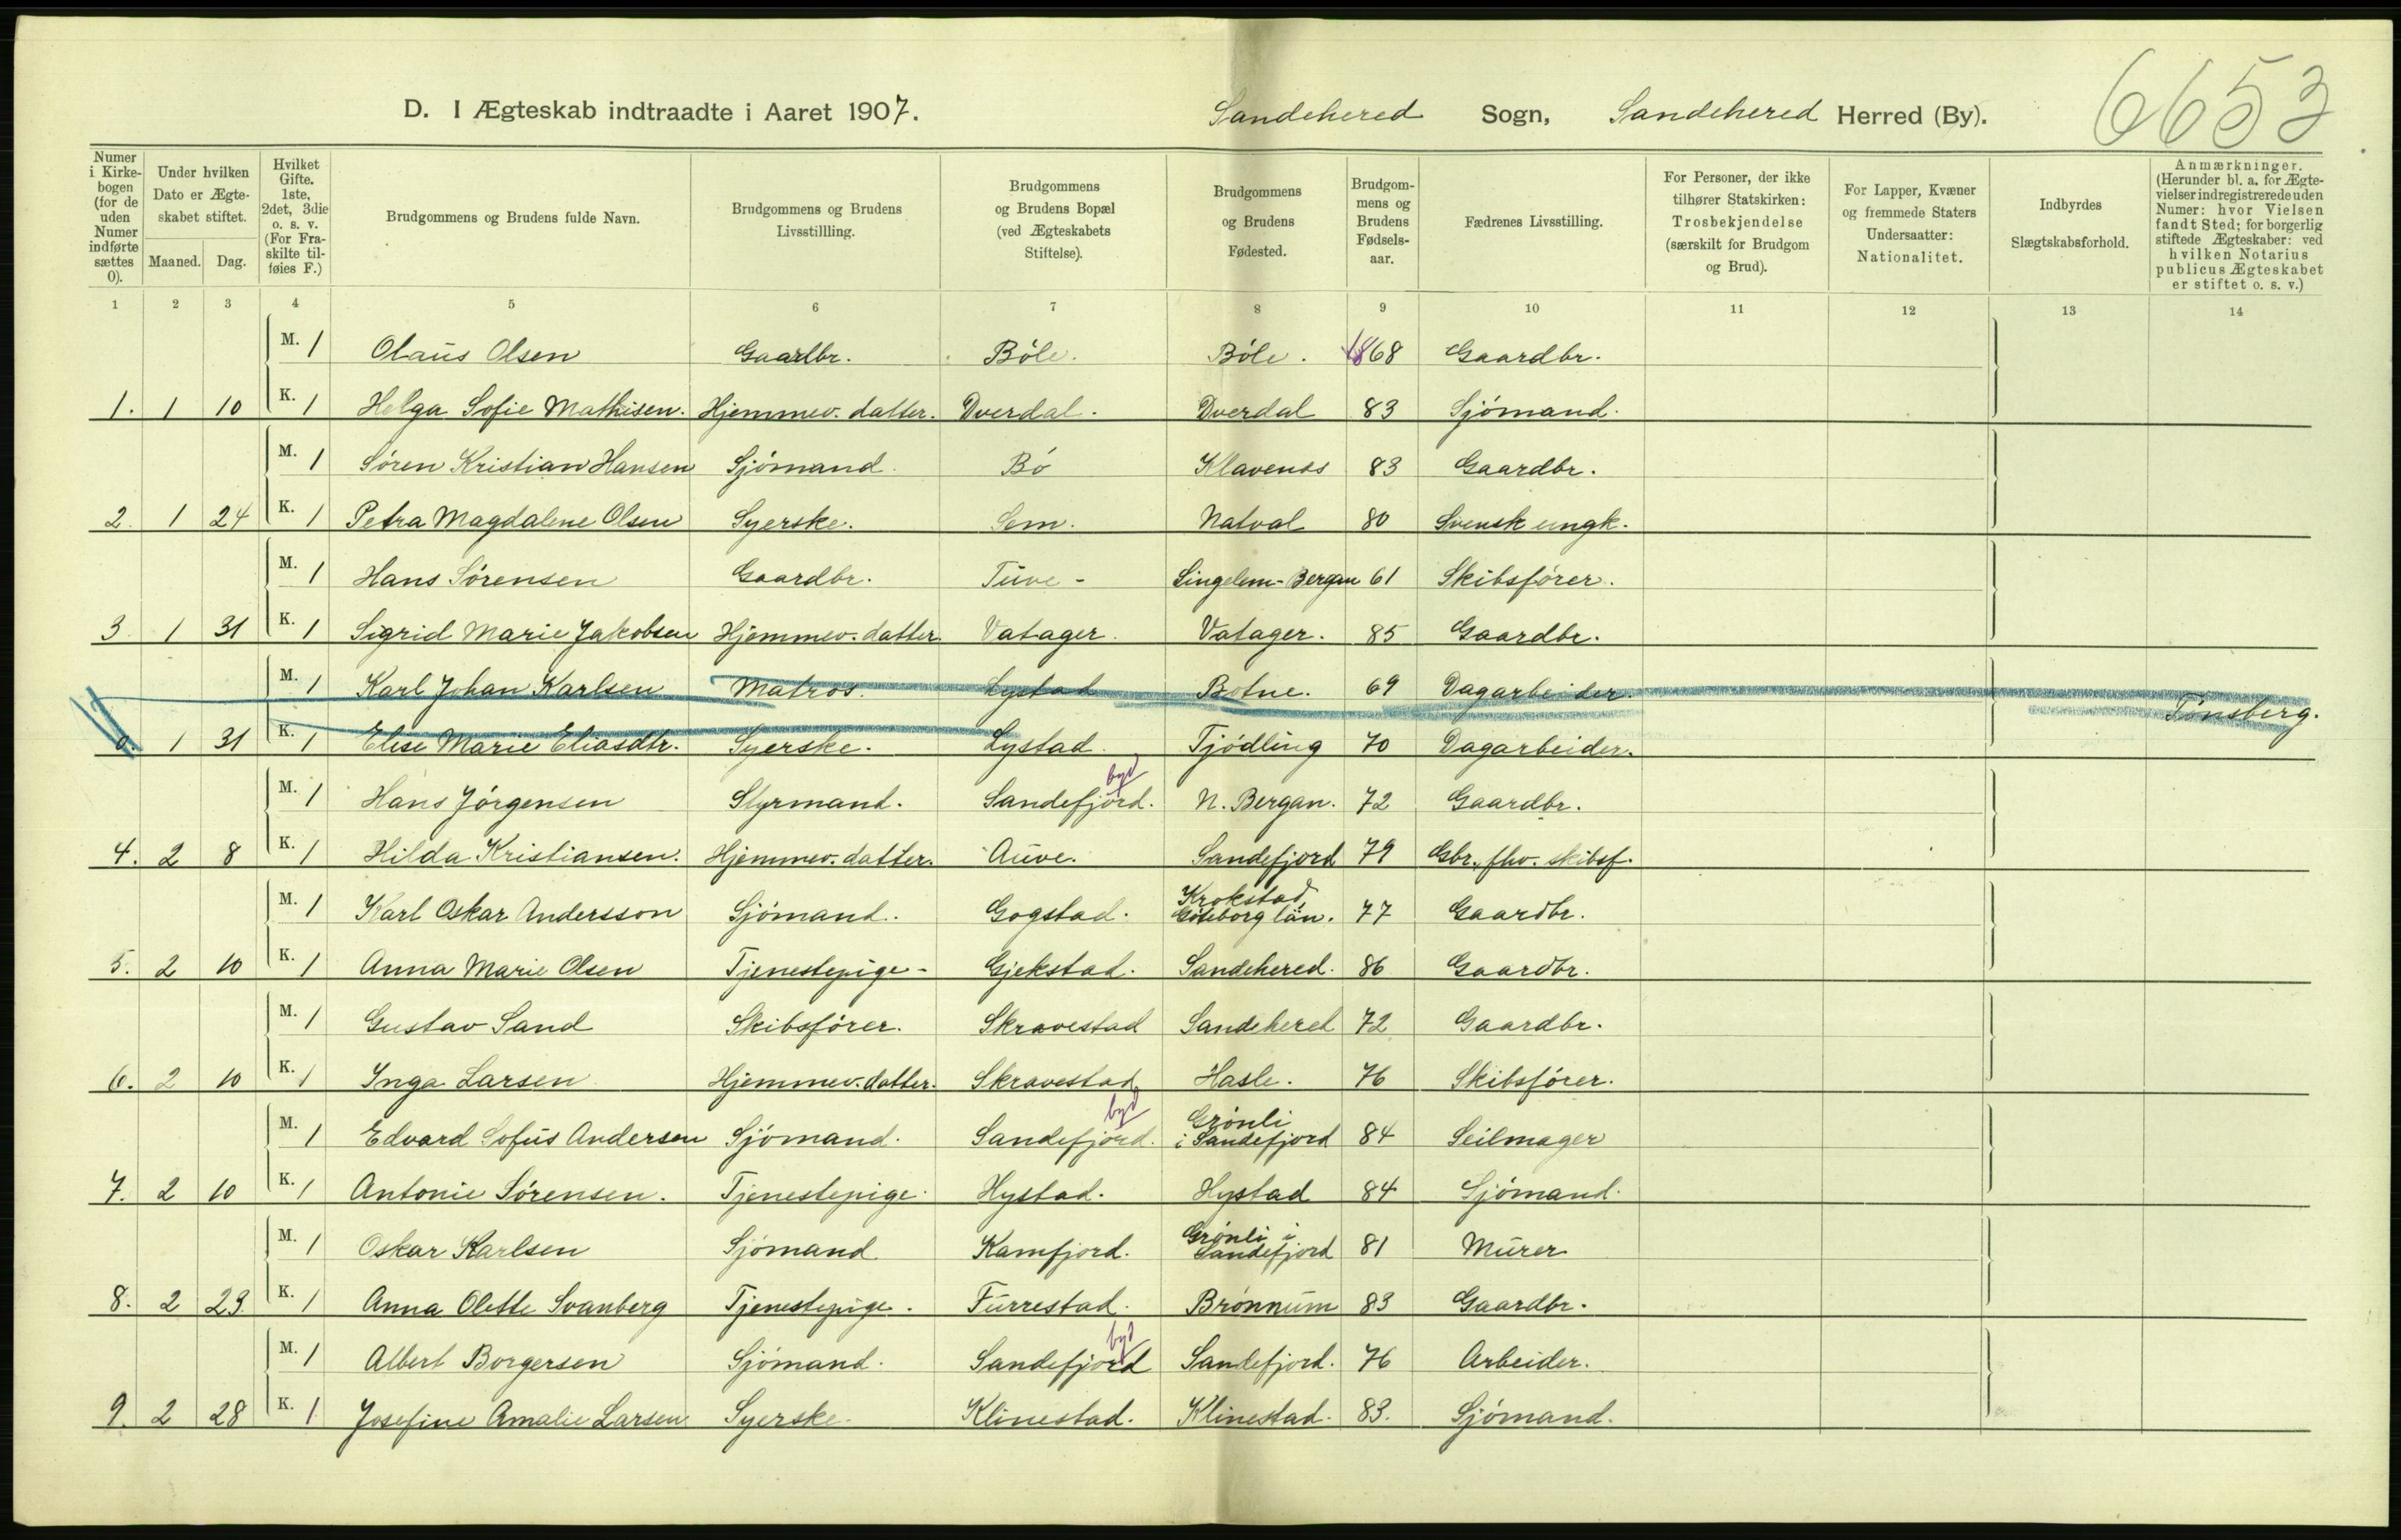 6653
D. I Ægteskab indtraadte i Aaret 1907. Sandehered Sogn, Sandehered Herred (By).
Numer i Kirkebogen (for de uden Numer indførte sættes 0). Under hvilken Dato er Ægteskabet stiftet. Maaned. Dag. Hvilket Gifte. 1ste, 2det, 3die o. s. v. (For Fraskilte tilføies F.) Brudgommens og Brudens fulde Navn. Brudgommens og Brudens Livsstillling. Brudgommens og Brudens Bopæl (ved Ægteskabets Stiftelse). Brudgommens og Brudens Fødested. Brudgommens og Brudens Fødselsaar. Fædrenes Livsstilling. For Personer, der ikke tilhører Statskirken: Trosbekjendelse (særskilt for Brudgom og Brud). For Lapper, Kvæner og fremmede Staters Undersaatter: Nationalitet. Indbyrdes Slægtskabsforhold. Anmærkninger. (Herunder bl. a. for Ægtevielser indregistrerede uden Numer: hvor Vielsen fandt Sted; for borgerlig stiftede Ægteskaber: ved hvilken Notarius publicus Ægteskabet er stiftet o. s. v.)
1 2 3 4 5 6 7 8 9 10 11 12 13 14
M. 1 Olaus Olsen Gaardbr. Bøle. Bøle. 1868 Gaardbr.
1. 1 10 K. 1 Helga Sofie Mathisen. Hjemmev. datter. Dverdal. Dverdal 83 Sjömand.
M. 1 Sören Kristian Hansen Sjömand. Bö Klavenes 83 Gaardbr.
2. 1 24 K. 1 Petra Magdalene Olsen Syerske. Sem. Natval 80 Svensk ungk.
M. 1 Hans Sörensen Gaardbr. Tuve - Lingelem-Bergan 61 Skibsförer.
3 1 31 K. 1 Sigrid Marie Jakobsen Hjemmev. datter. Vatager. Vatager. 85 Gaardbr.
M. 1 Karl Johan Karlsen Matros. Lystad Botne. 69 Dagarbeider.
Tönsberg.
0. 1 31 K. 1 Elise Marie Eliasdtr. Syerske. Lystad. Tjödling 70 Dagarbeider.
byd
M. 1 Hans Jörgensen Styrmand. Sandefjord. N. Bergan. 72 Gaardbr.
4. 2 8 K. 1 Hilda Kristiansen. Hjemmev. datter. Auve. Sandefjord 79 Gbr., fhv. skibsf.
M. 1 Karl Oskar Andersson Sjömand. Gogstad. Krokstad, Göteborg län. 77 Gaardbr.
5. 2 10 K. 1 Anna Marie Olsen Tjenestepige - Gjekstad. Sandehered. 86 Gaardbr.
M. 1 Gustav Sand Skibsförer. Skravestad Sandehered 72 Gaardbr.
6. 2 10 K. 1 Inga Larsen Hjemmev. datter. Skravestad Hasle. 76 Skibsförer.
byd
M. 1 Edvard Sofus Andersen Sjömand. Sandefjord. Grönli i Sandefjord 84 Seilmager
7. 2 10 K. 1 Antonie Sörensen. Tjenestepige. Hystad. Hystad 84 Sjömand.
M. 1 Oskar Karlsen Sjömand Kamfjord. Grönli i Sandefjord 81 Murer
8. 2 23. K. 1 Anna Olette Svanberg Tjenestepige. Furrestad. Brönnum 83 Gaardbr.
byd
M. 1 Albert Borgersen Sjömand. Sandefjord Sandefjord. 76 Arbeider.
9. 2 28 K. 1 Josefine Amalie Larsen Syerske. Klinestad. Klinestad. 83. Sjömand.